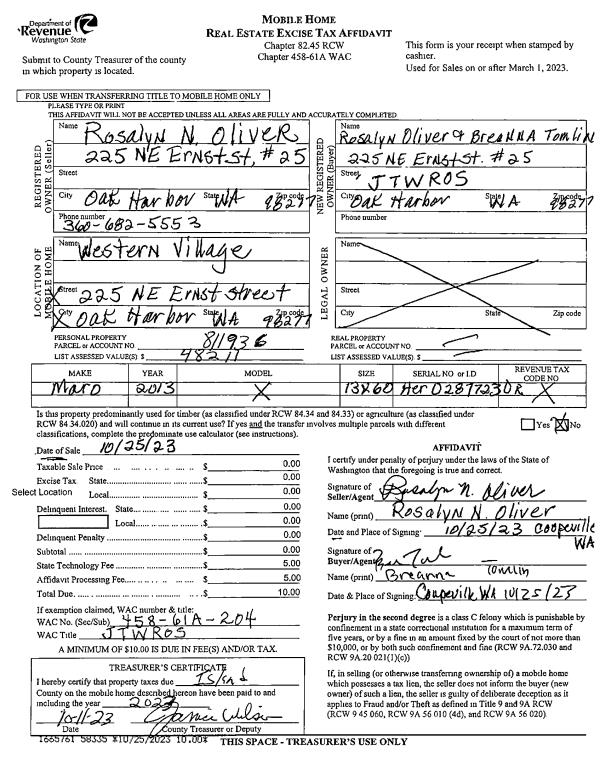 Department of
Revenue
Washington State
MOBILE HOME
REAL ESTATE EXCISE TAX AFFIDAVIT
Chapter 82.45 RCW
Chapter 458-61A WAC
Submit to County Treasurer of the county
in which property is located.
This form is your receipt when stamped by
cashier.
Used for Sales on or after March 1, 2023.
FOR USE WHEN TRANSFERRING TITLE TO MOBILE HOME ONLY
PLEASE TYPE OR PRINT
THIS AFFIDAVIT WILL NOT BE ACCEPTED UNLESS ALL AREAS ARE FULLY AND ACCURATELY COMPLETED
REGISTERED OWNER (Seller)
Name Rosalyn N. Oliver
225 NE Ernst St, #25
Street
City Oak Harbor State WA Zip code 98277
Phone number
360-682-5553
NEW REGISTERED OWNER (Buyer)
Name
Rosalyn Oliver & Breanna Tomlin
225 NE Ernst St. #25
Street JTWROS
City Oak Harbor State WA Zip code 98277
Phone number
LOCATION OF MOBILE HOME
Name Western Village
Street 225 NE Ernst Street
City Oak Harbor State WA Zip code 98277
LEGAL OWNER
Name
Street
City State Zip code
PERSONAL PROPERTY
PARCEL or ACCOUNT NO. 811936
LIST ASSESSED VALUE(S) $ 48211
REAL PROPERTY
PARCEL or ACCOUNT NO.
LIST ASSESSED VALUE(S) $
MAKE YEAR MODEL SIZE SERIAL NO. or I.D REVENUE TAX CODE NO
Maro 2013 X 13x60 Her02877230R X
Is this property predominantly used for timber (as classified under RCW 84.34 and 84.33) or agriculture (as classified under
RCW 84.34.020) and will continue in its current use? If yes and the transfer involves multiple parcels with different
classifications, complete the predominate use calculator (see instructions).
Yes X No
Date of Sale 10/25/23
Taxable Sale Price $ 0.00
Excise Tax State $ 0.00
Select Location Local $ 0.00
Delinquent Interest. State $ 0.00
Local $ 0.00
Delinquent Penalty $ 0.00
Subtotal $ 0.00
State Technology Fee $ 5.00
Affidavit Processing Fee $ 5.00
Total Due $ 10.00
If exemption claimed, WAC number & title:
WAC No. (Sec/Sub) 458-61A-204
WAC Title JTWROS
A MINIMUM OF $10.00 IS DUE IN FEE(S) AND/OR TAX.
TREASURER'S CERTIFICATE
I hereby certify that property taxes due Island
County on the mobile home described hereon have been paid to and
including the year 2023
10-11-23
Date County Treasurer or Deputy
AFFIDAVIT
I certify under penalty of perjury under the laws of the State of
Washington that the foregoing is true and correct.
Signature of
Seller/Agent Rosalyn N. Oliver
Name (print) Rosalyn N. Oliver
Date and Place of Signing: 10/25/23 Coupeville
WA
Signature of
Buyer/Agent
Name (print) Breanna Tomlin
Date & Place of Signing: Coupeville WA 10/25/23
Perjury in the second degree is a class C felony which is punishable by
confinement in a state correctional institution for a maximum term of
five years, or by a fine in an amount fixed by the court of not more than
$10,000, or by both such confinement and fine (RCW 9A.72.030 and
RCW 9A.20 021(1)(c))
If, in selling (or otherwise transferring ownership of) a mobile home
which possesses a tax lien, the seller does not inform the buyer (new
owner) of such a lien, the seller is guilty of deliberate deception as it
applies to Fraud and/or Theft as defined in Title 9 and 9A RCW
(RCW 9 45 060, RCW 9A 56 010 (4d), and RCW 9A 56 020).
1665761 58335 *10/25/2023 10.00*
THIS SPACE - TREASURER'S USE ONLY